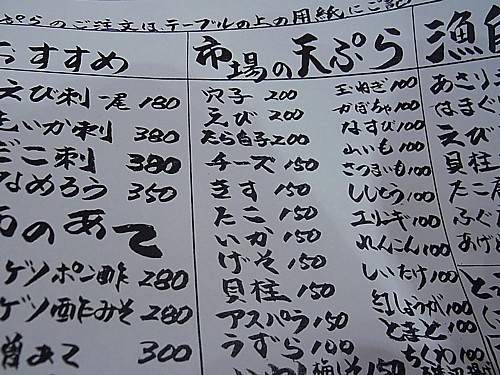 ぷらのご注文はテーブルの上の用紙にご記
おすすめ
えび刺 一尾 180
生いか刺 380
たこ刺 380
なめろう 350
のあて
ゲソポン酢 280
ゲソ酢みそ 280
あて 300
市場の天ぷら
穴子 200
えび 200
たら白子 200
チーズ 150
きす 150
たこ 150
いか 150
げそ 150
貝柱 150
アスパラ 150
うずら 100
玉ねぎ 100
かぼちゃ 100
なすび 100
山いも 100
さつまいも 100
ししとう 100
エリンギ 100
れんこん 100
しいたけ 100
紅しょうが 100
とまと 100
ちくわ 100
梅しそ 150
漁師
あさり
はまぐ
えび
貝柱
たこ
ふぐ
あげ